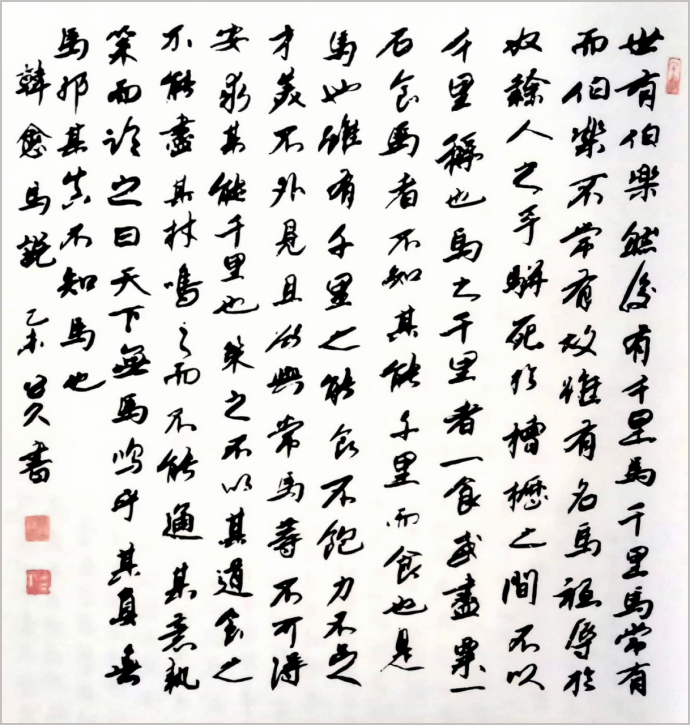 世有伯樂然後有千里馬千里馬常有
而伯樂不常有故雖有名馬祗辱於
奴隸人之手駢死於槽櫪之間不以
千里稱也馬之千里者一食或盡粟一
石食馬者不知其能千里而食也是
馬也雖有千里之能食不飽力不足
才美不外見且欲與常馬等不可得
安求其能千里也策之不以其道食之
不能盡其材鳴之而不能通其意執
策而臨之曰天下無馬嗚呼其真無
馬邪其真不知馬也
韓愈馬說 乙未 久書